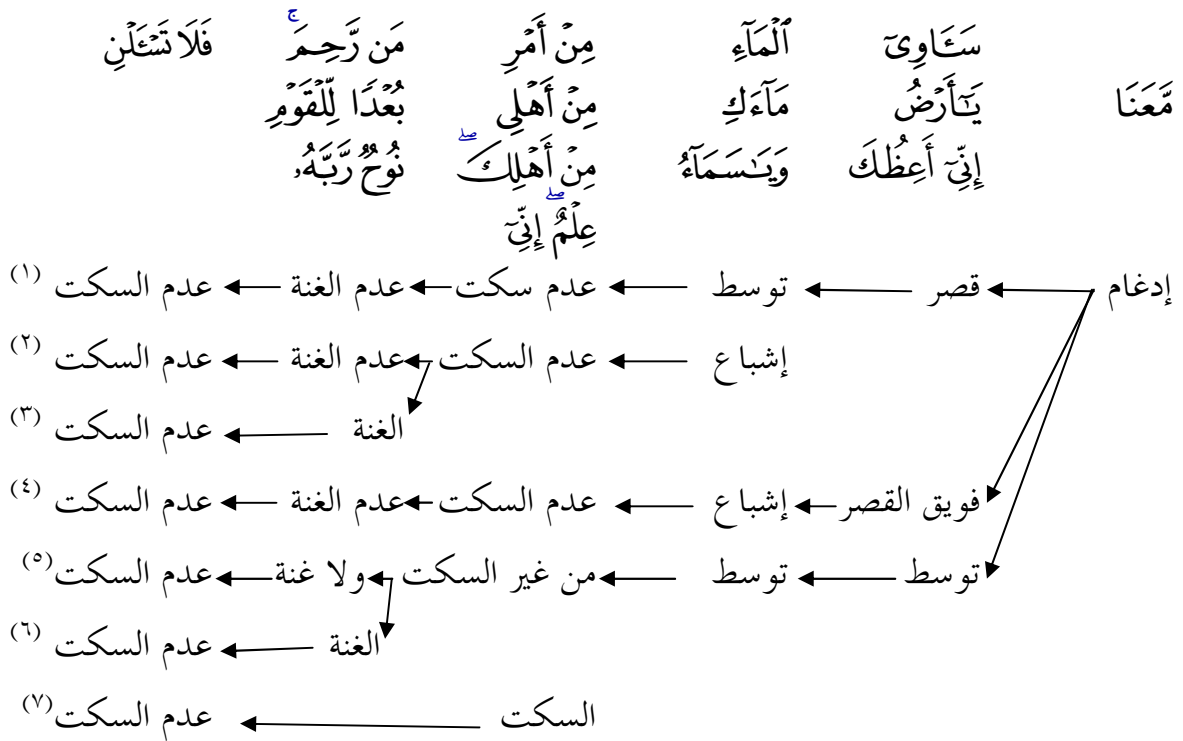 سَـَٔاوِىٓ ٱلْمَآءِ مِنْ أَمْرِ مَن رَّحِمَ ۚ فَلَا تَسْـَٔلْنِ
مَّعَنَا يَـٰٓأَرْضُ مَآءَكِ مِنْ أَهْلِى بُعْدًا لِّلْقَوْمِ
إِنِّىٓ أَعِظُكَ وَيَـٰسَمَآءُ مِنْ أَهْلِكَ ۖ نُوحٌ رَّبَّهُۥ
عِلْمٌ ۖ إِنِّىٓ
إدغام قصر توسط عدم سكت عدم الغنة عدم السكت (١)
إشباع عدم السكت عدم الغنة عدم السكت (٢)
الغنة عدم السكت (٣)
فويق القصر إشباع عدم السكت عدم الغنة عدم السكت (٤)
توسط توسط من غير السكت ولا غنة عدم السكت (٥)
الغنة عدم السكت (٦)
السكت عدم السكت (٧)